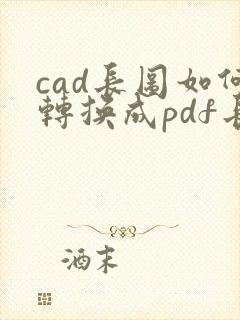 cad長圖如何
轉換成pdf長
酒末